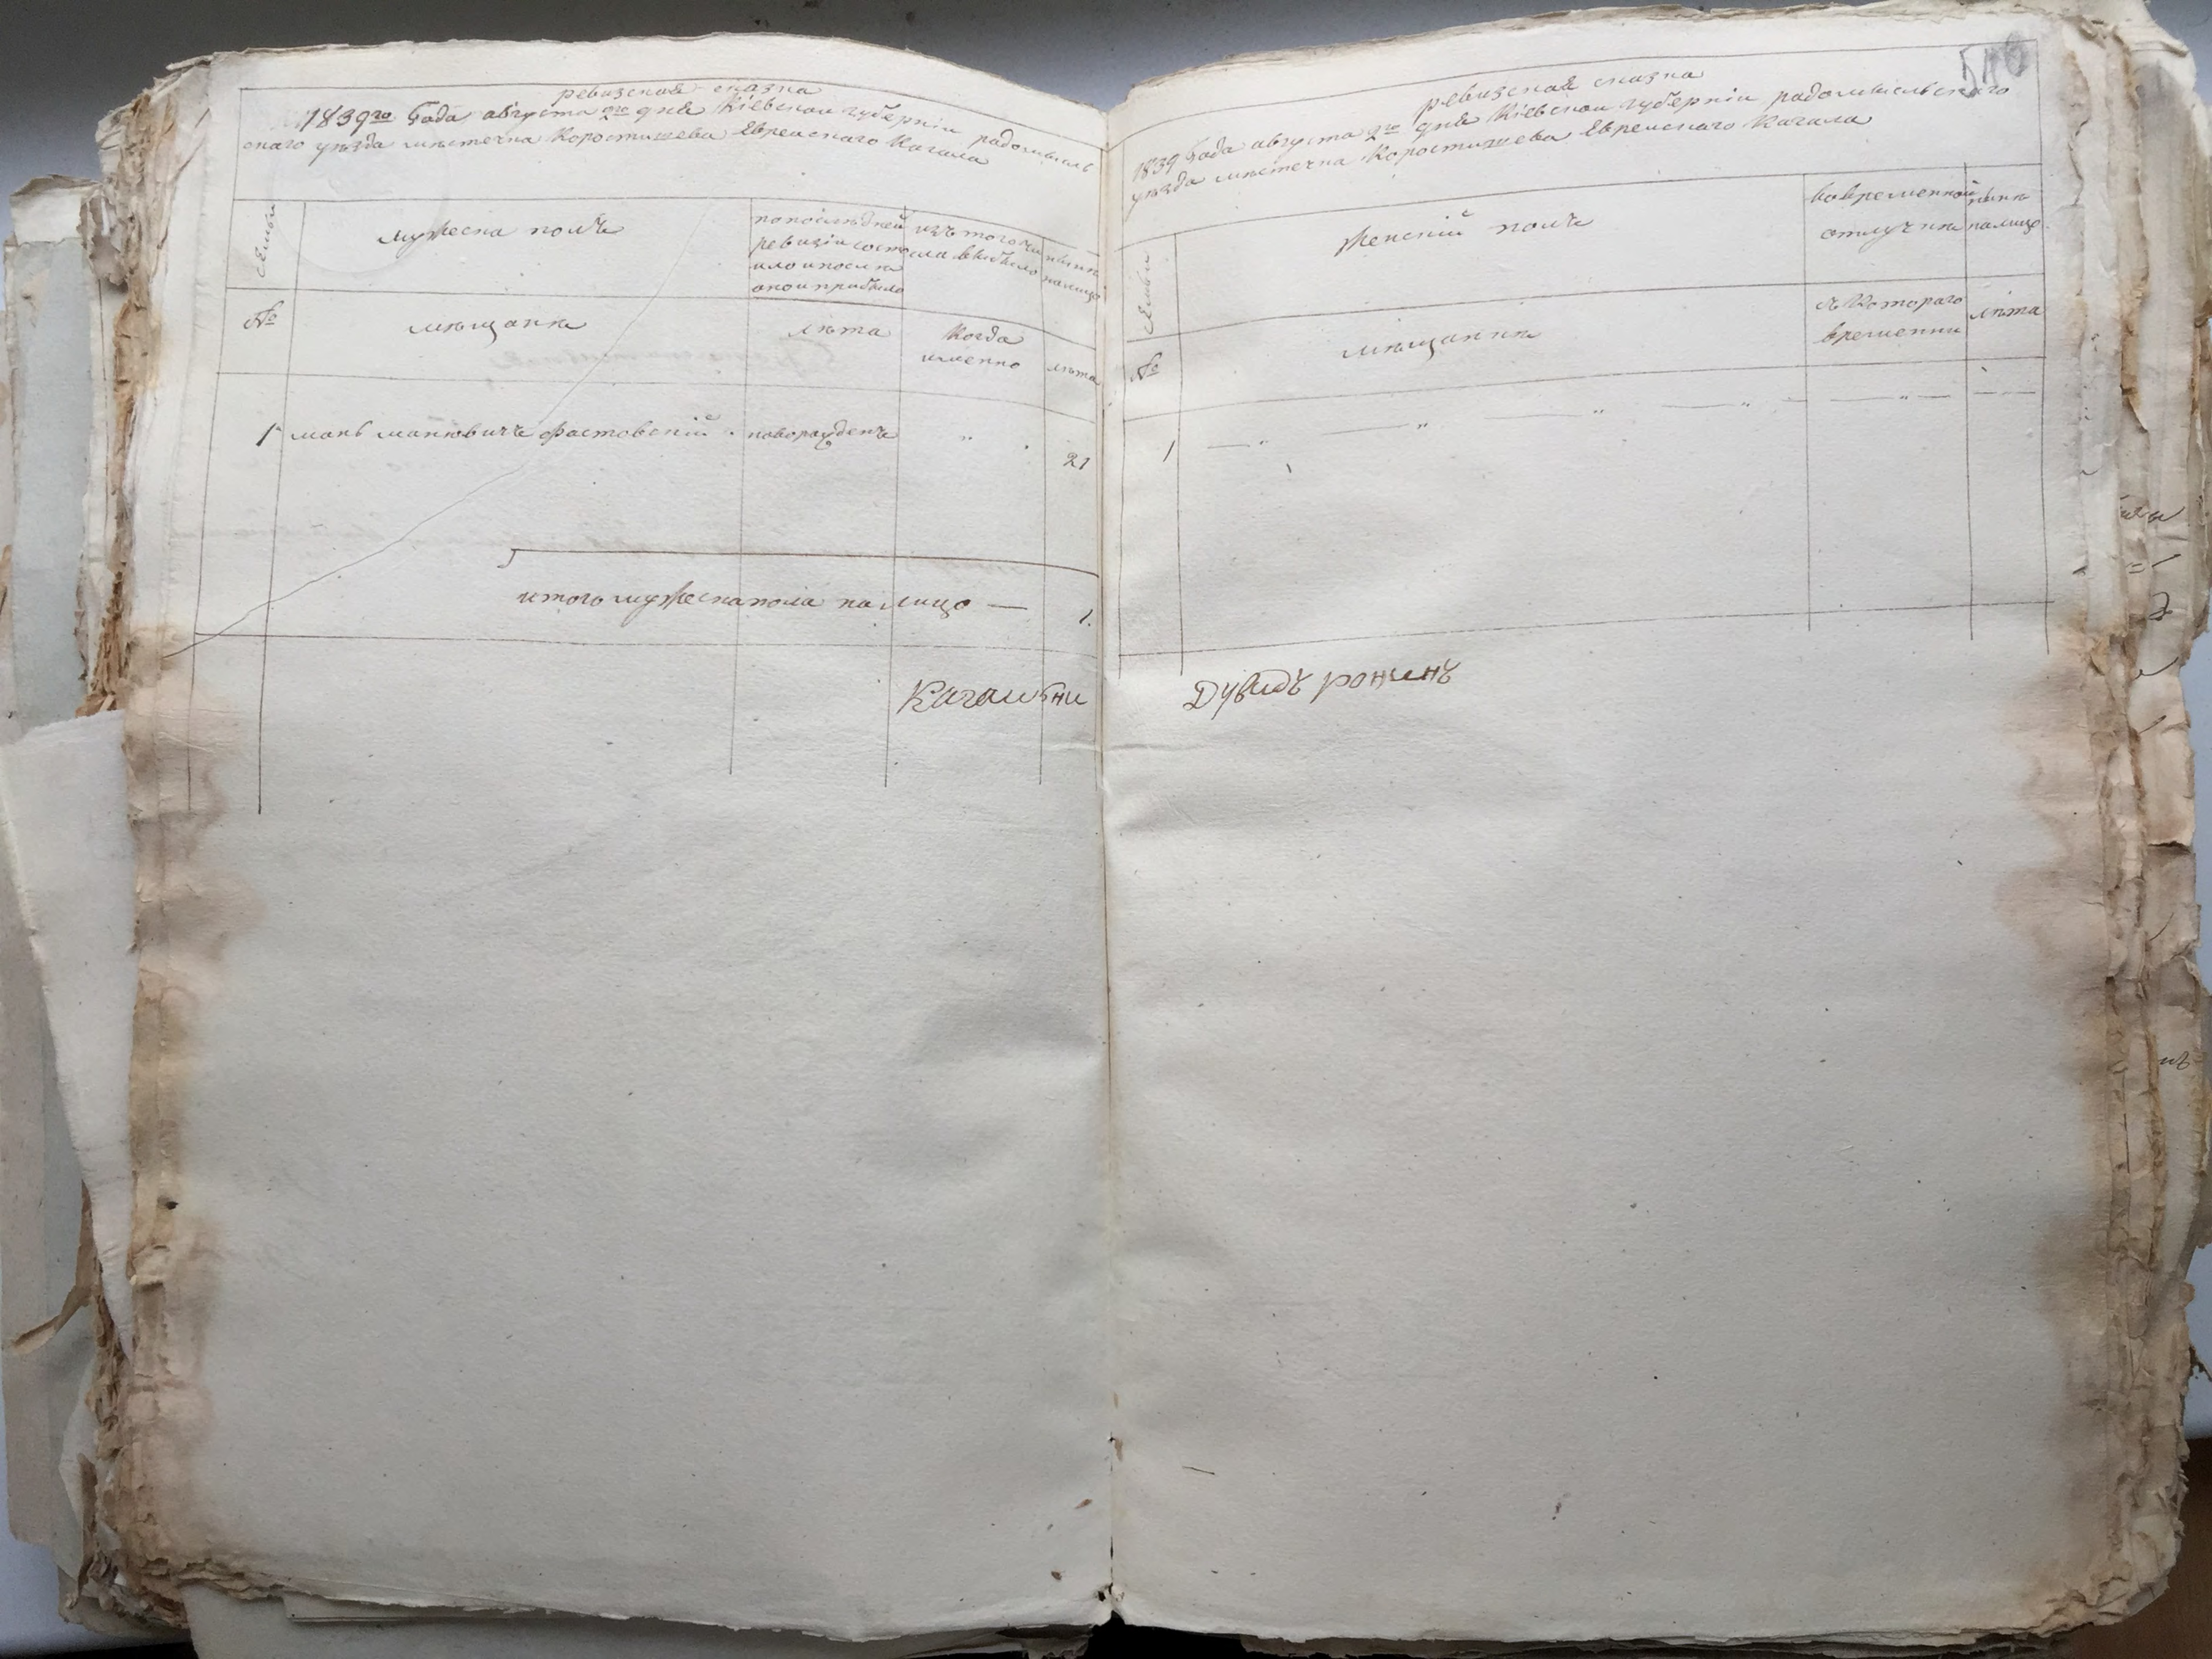 ревизская сказка
1839го Года августа 2го дня Кіевскои губерніи радомысль
скаго уѣзда мѣстечка Коростишева Евреискаго Кагала
сѣмьи
мужеска полъ
попослѣдней
ревизіи состо
ило и послѣ
онои прибыло
изъ того чи
сла выбыло
нынѣ
налицо
№
мѣщанѣ
лѣта
Когда
именно
лѣта
1
манѣ маніовичъ Фастовскій
новорожденъ
"
21
итого мужеска пола на лицо —
1.
Кагальни
540
ревизская сказка
1839 Года августа 2го дня Кіевскои губерніи радомысльскаго
уѣзда мѣстечка Коростишева Евреискаго Кагала
сѣмьи
женскій полъ
вовременной
отлучки
нынѣ
налицо
№
мѣщанки
съ Котораго
времени
лѣта
1
— " — " — " — " — — " — — —
Дувидъ